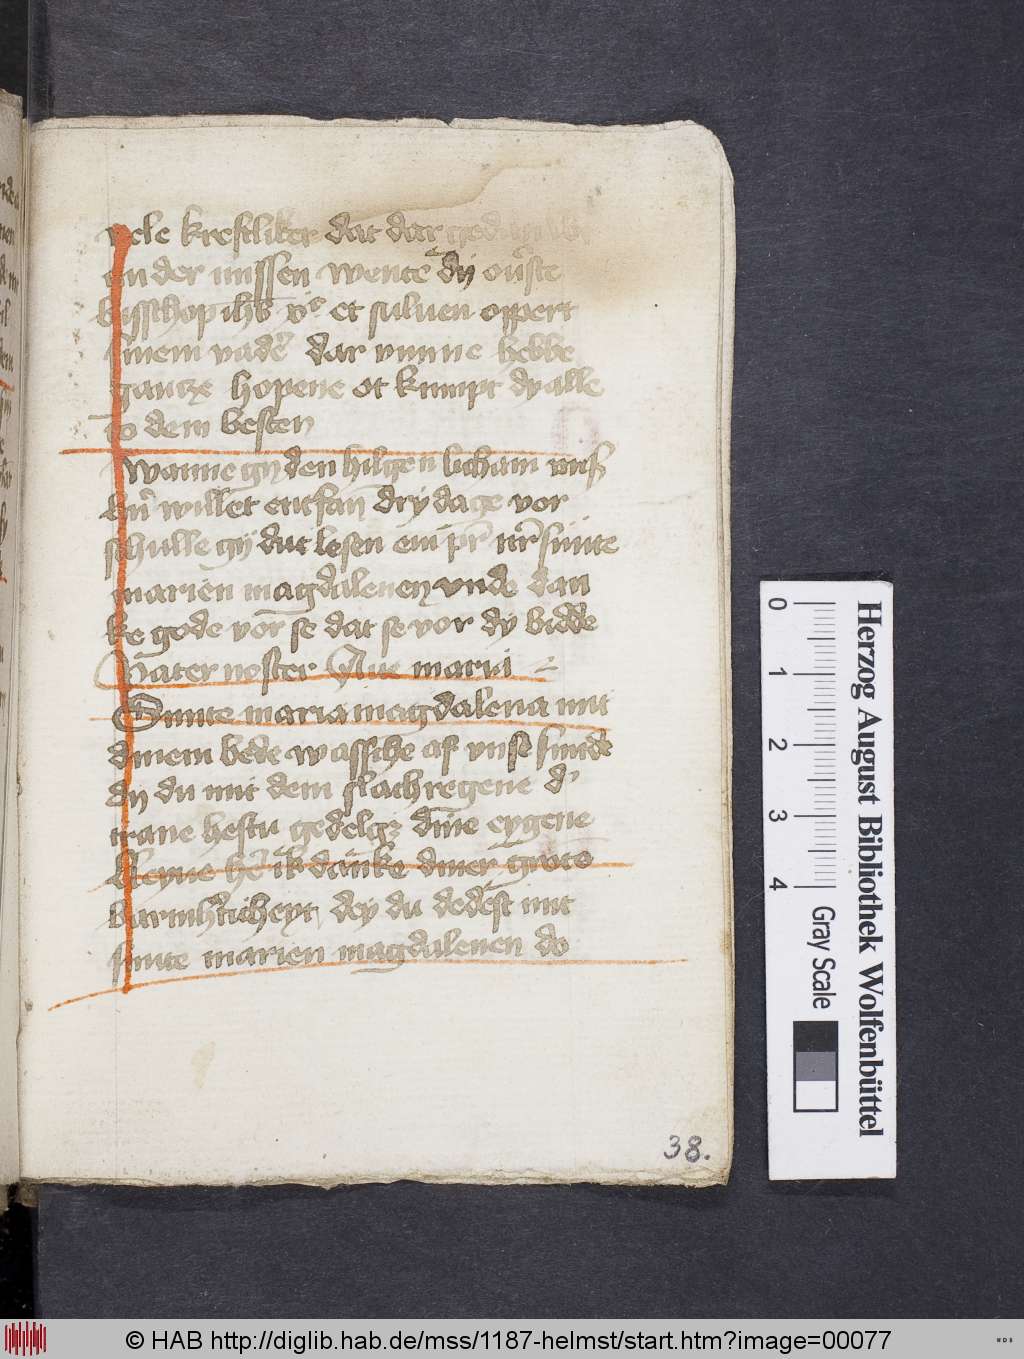 vele kreftliker dat dar
an der missen wente dy ouste
bysschop ihs xps et suluen oppert
sinem vader dar vmme hebbe
gantze hopene ot kumpt dy alle
to dem besten
Wanne gy den hilgen licham vns
hrn willet entfan dry dage vor
schulle gy dut lesen ein pr nr sunte
marien magdalenen vnde dan
ke gode vor se dat se vor dy bidde
Pater noster Aue maria
Sunte maria magdalena mit
dinem bede wassche af vnse sunde
dy du mit dem slachregene dr
trane hestu gedelget dine eygene
Leyue her ik danke diner grote
barmhticheyt dey du dedest mit
sunte marien magdalenen do
38.
0
1
2
3
4
Gray Scale
Herzog August Bibliothek Wolfenbüttel
© HAB http://diglib.hab.de/mss/1187-helmst/start.htm?image=00077